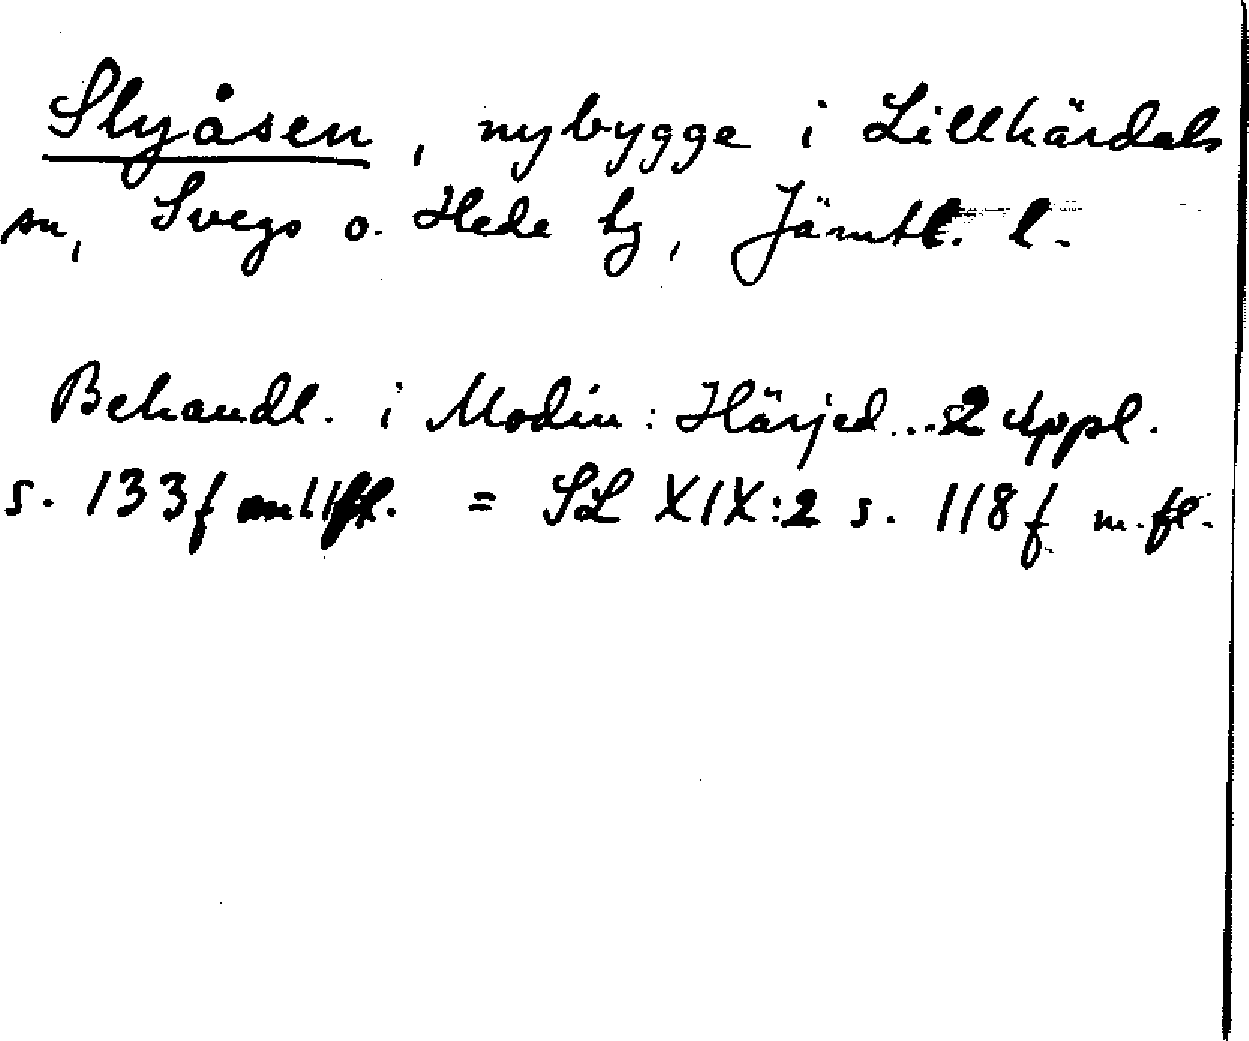 Slyåsen, nybygge i Lillhärdals
sn, Svegs o. Hede tg, Jämtl. l.
Behandl. i Modin: Härjed... 2 uppl.
s. 133f m.fl. = SL XIX:2 s. 118f m.fl.